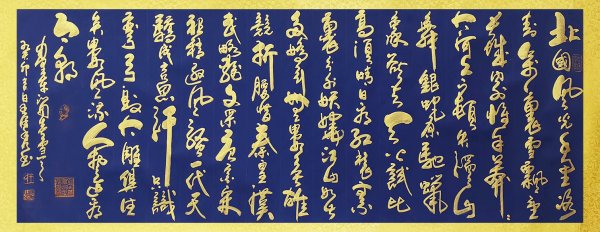 北國風光千里冰
封萬里雪飄望
長城內外惟餘莽莽
大河上下頓失滔滔山
舞銀蛇原馳蠟
象欲與天公試比
高須晴日看紅裝素
裹分外妖嬈江山如此
多嬌引無數英雄
競折腰惜秦皇漢
武略輸文采唐宗宋
祖稍遜風騷一代天
驕成吉思汗只識
彎弓射大雕俱往
矣數風流人物還看
今朝